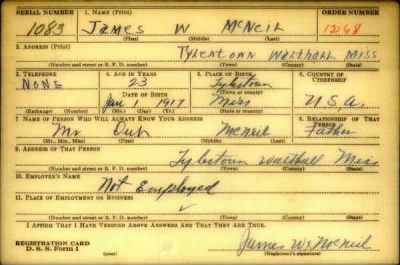 SERIAL NUMBER 1. Name (Print) ORDER NUMBER
1083 James W McNeil 1268
(First) (Middle) (Last)
2. Address (Print)
Tylertown Walthall Miss
(Number and street or R. F. D. number) (Town) (County) (State)
3. Telephone 4. Age in Years 5. Place of Birth 6. Country of Citizenship
None 23 Tylertown U.S.A.
Date of Birth (Town or county)
Jan 1 1917 Miss
(Exchange) (Number) (Mo.) (Day) (Yr.) (State or country)
7. Name of Person Who Will Always Know Your Address 8. Relationship of That Person
Mr McNeil Father
(Mr., Mrs., Miss) (First) (Middle) (Last)
9. Address of That Person
Tylertown Walthall Miss
(Number and street or R. F. D. number) (Town) (County) (State)
10. Employer's Name
Not Employed
11. Place of Employment or Business
(Number and street or R. F. D. number) (Town) (County) (State)
I Affirm That I Have Verified Above Answers and That They Are True.
REGISTRATION CARD James W McNeil
D. S. S. Form 1 (Registrant's signature)